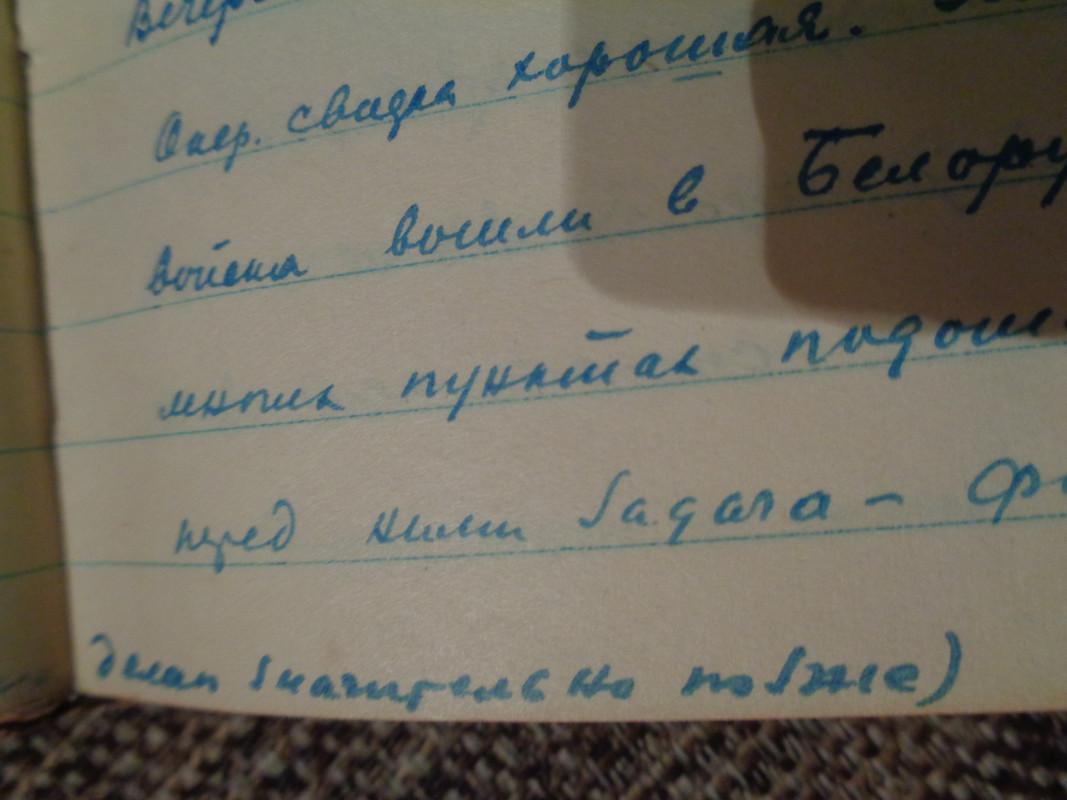 Опер. сводка хорошая.
войска вошли в Белору
многих пунктах подош
перед ними задача – Ф
делал значительно позже)